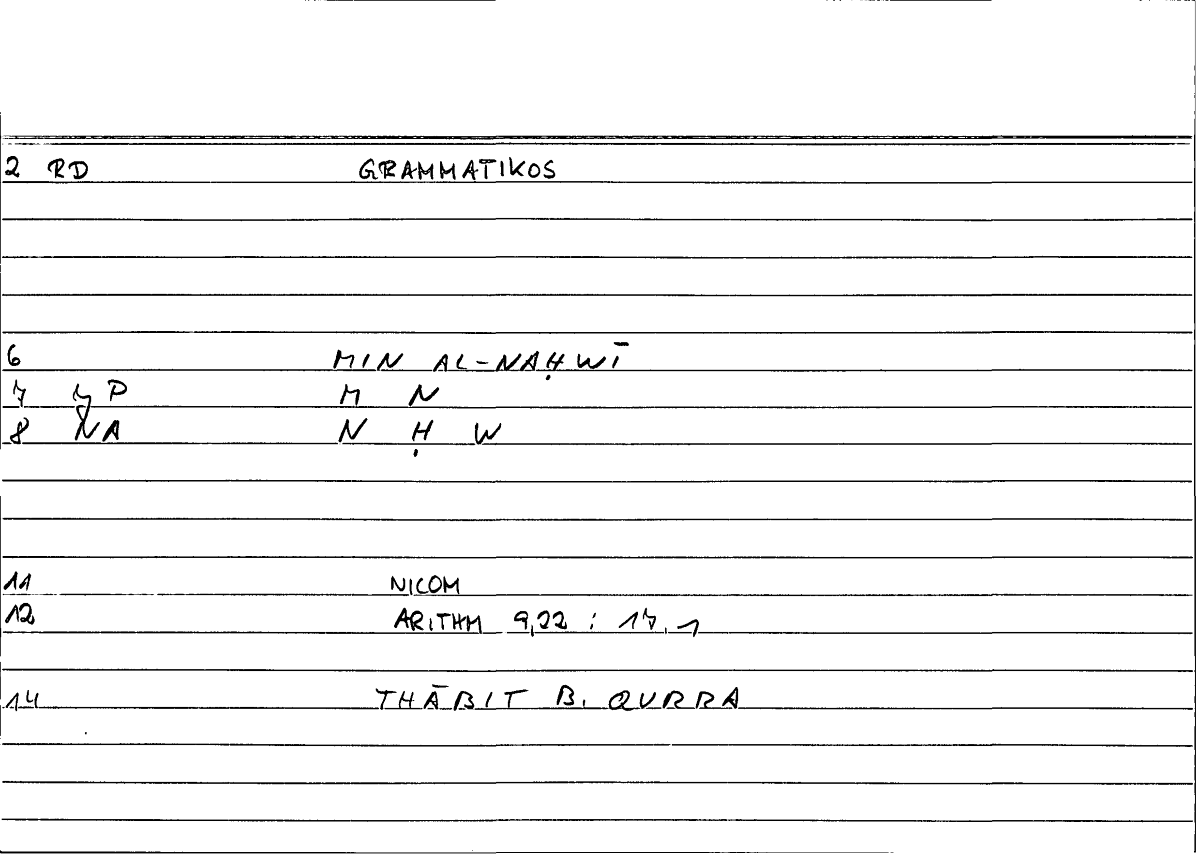 2 RD GRAMMATIKOS
6 MIN AL-NAḤWĪ
7 P M N
8 NA N Ḥ W
11 NICOM
12 ARITHM 9,22 : 17,1
14 THĀBIT B. QURRA